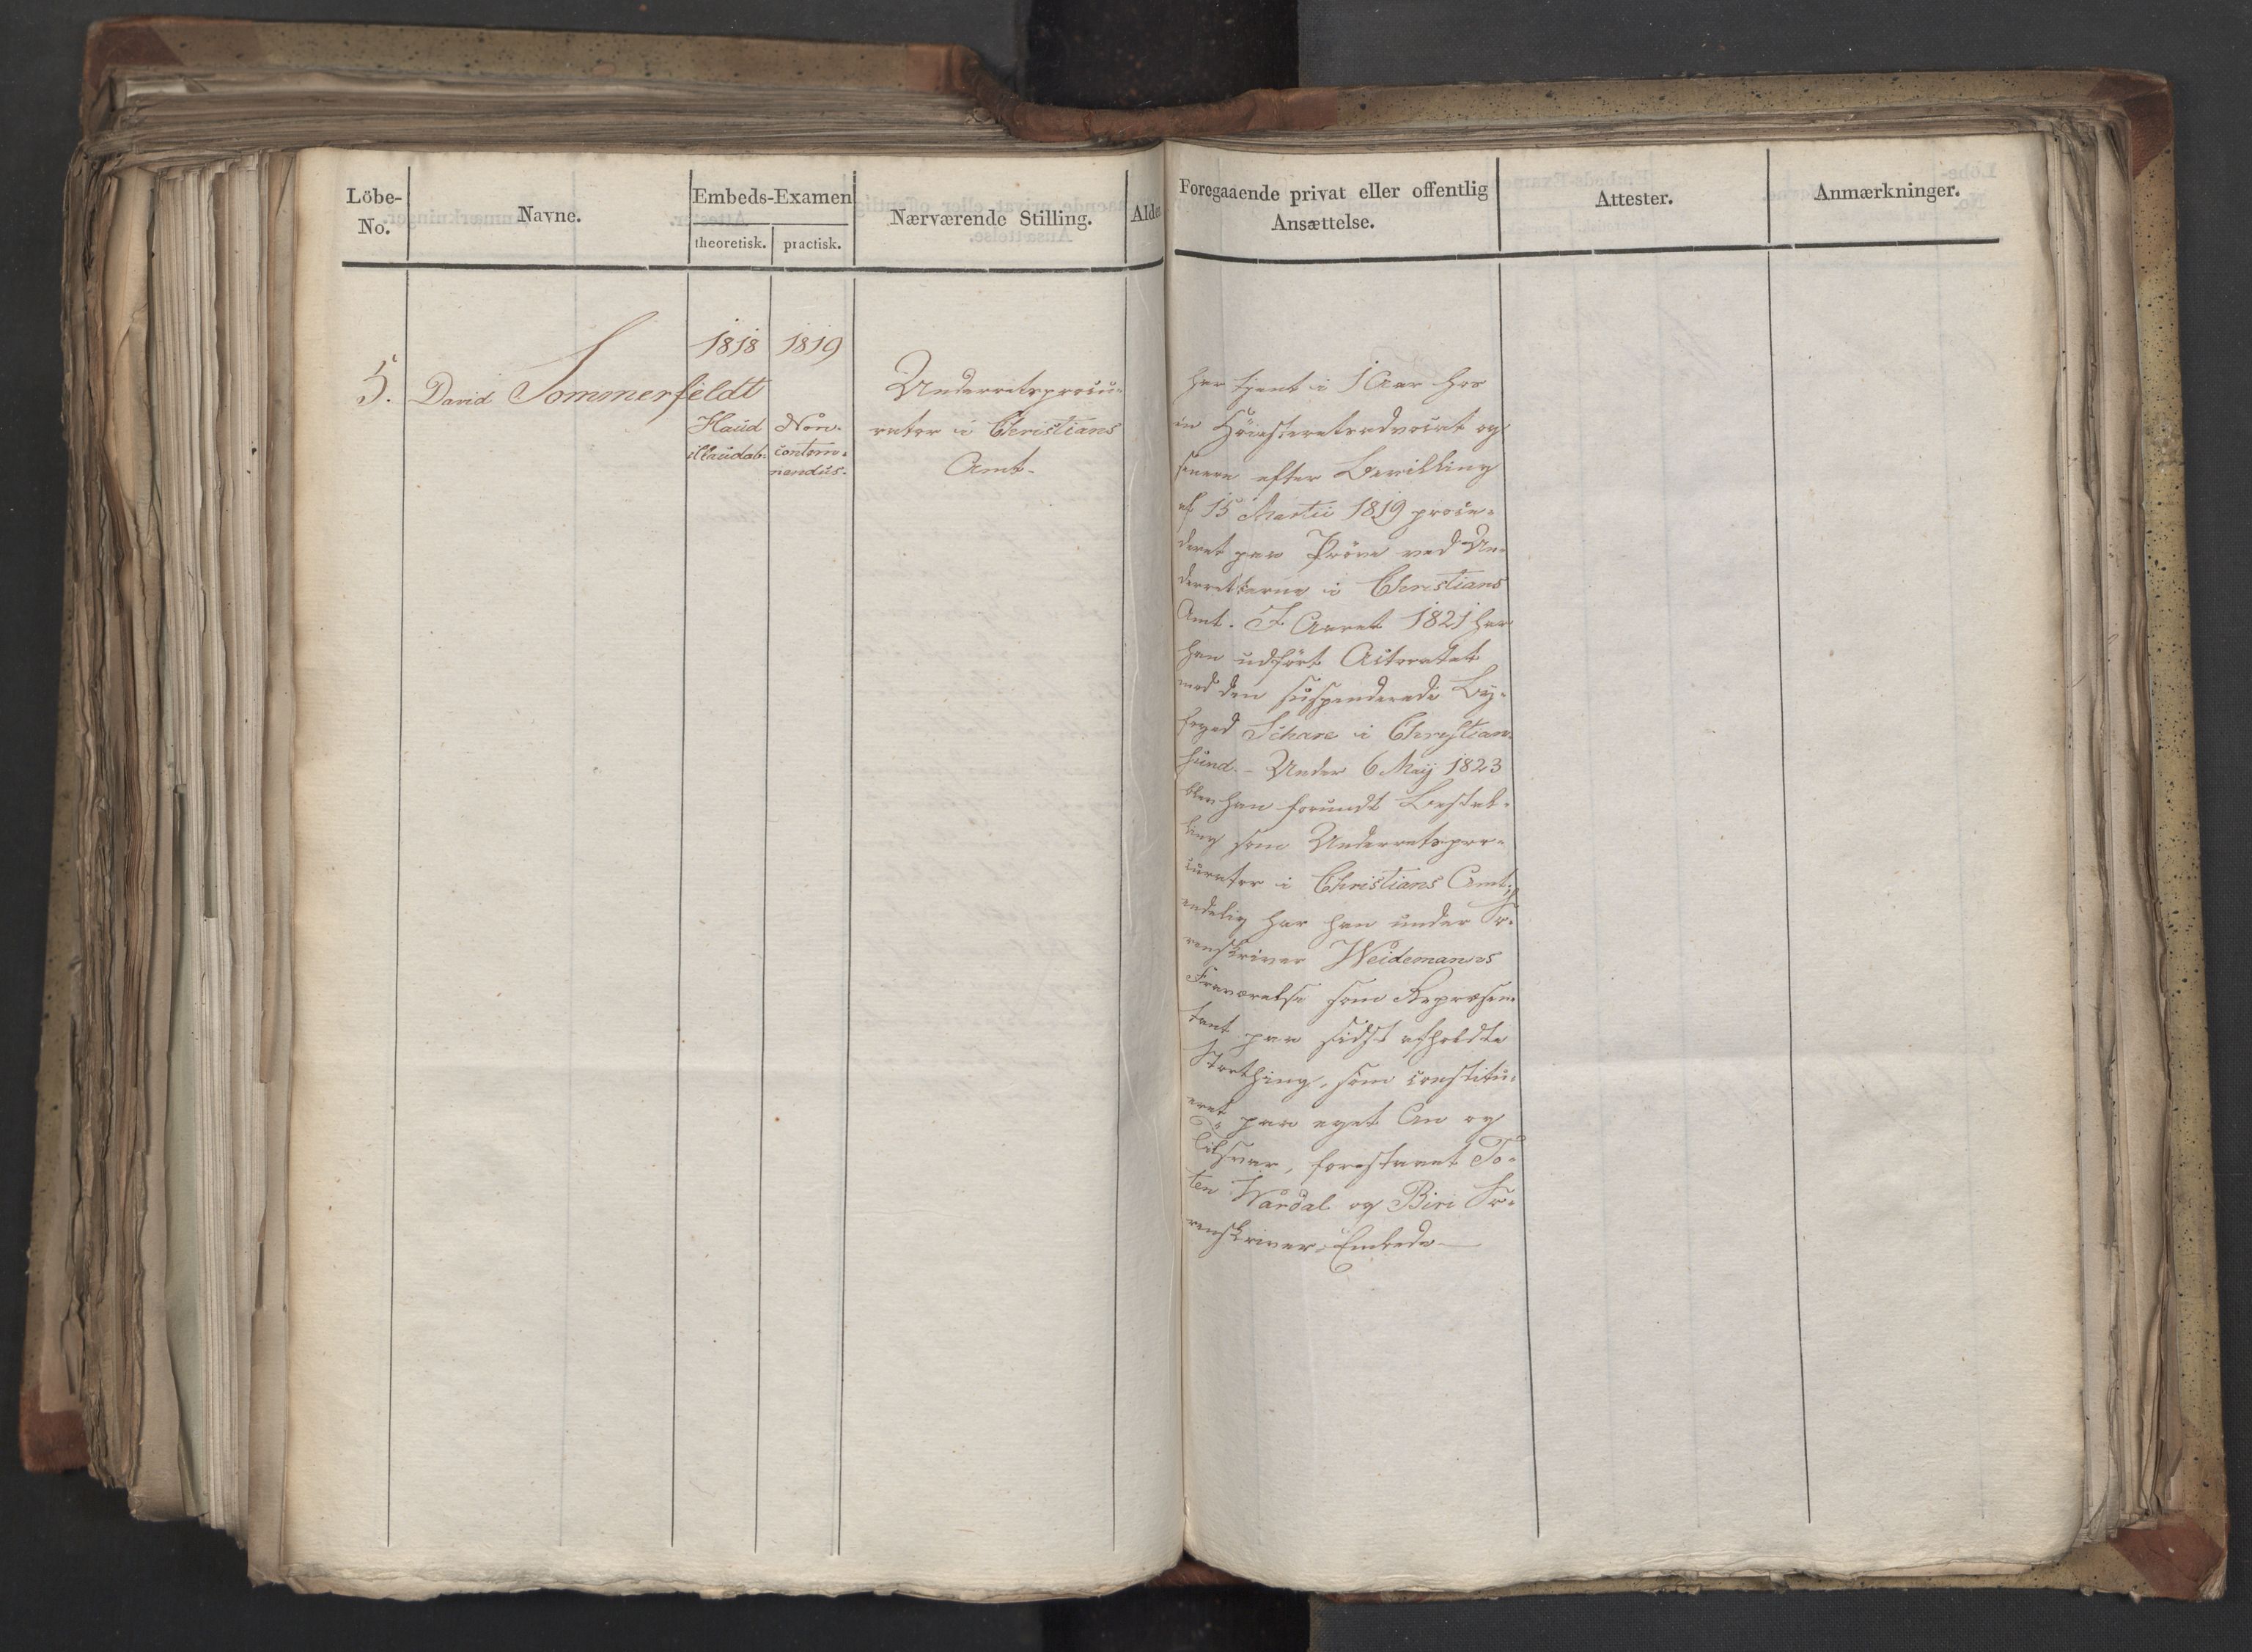 Löbe-
No.
Navne.
Embeds-Examen
theoretisk.
practisk.
Nærværende Stilling.
Alder
Foregaaende privat eller offentlig
Ansættelse.
Attester.
Anmærkninger.
5.
David Sommerfeldt
1818
Haud
illaudab:
1819
Non-
contem-
nendus.
Underretsprocu-
rator i Christians
Amt.
har tjent i 1 Aar hos
en Höiesteretsadvocat og
senere efter Bevilling
af 15 Martii 1819 proce-
deret paa Pröve ved Un-
derretterne i Christians
Amt. I Aaret 1821 har
han udfört Actoratet
mod den suspenderede By-
foged Schare i Christian-
sund. - Under 6 May 1823
blev han forundt Bestal-
ling som Underretspro-
curator i Christians Amt;
endelig har han under So-
renskriver Weidemanns
Fraværelse som Repræsen-
tant paa sidst afholdte
Storthing, som constitu-
eret paa eget An og
Tilsvar, forestaaet To-
ten Wardal og Biri So-
renskriver-Embede